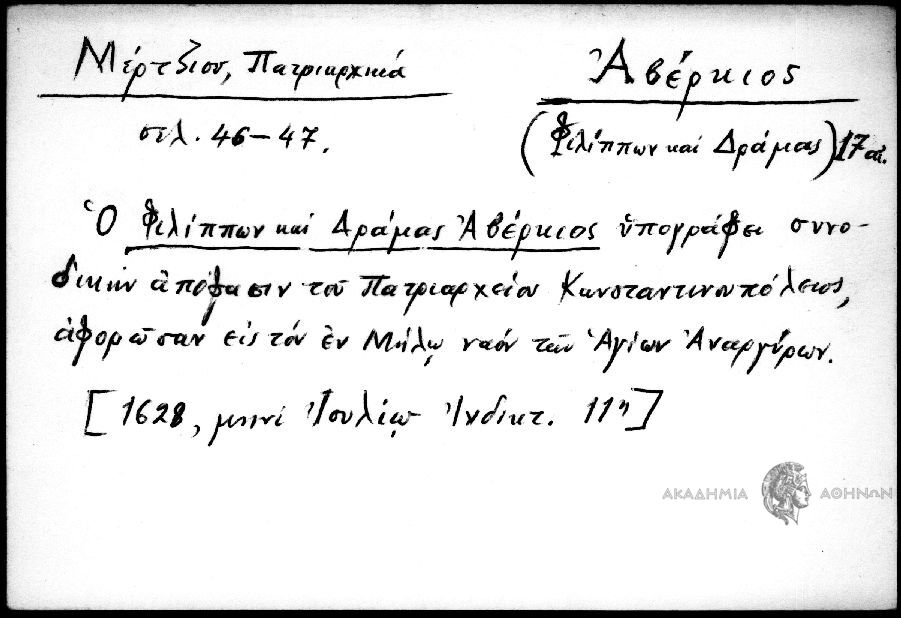 Μέρτζιου, Πατριαρχικά
σελ. 46–47.
Ἀβέρκιος
(Φιλίππων καί Δράμας) 17 αἰ.
Ὁ Φιλίππων καί Δράμας Ἀβέρκιος ὑπογράφει συνο-
δικήν ἀπόφασιν τοῦ Πατριαρχείου Κωνσταντινουπόλεως,
ἀφορῶσαν εἰς τόν ἐν Μήλῳ ναόν τῶν Ἁγίων Ἀναργύρων.
[1628, μηνί Ἰουλίῳ Ἰνδικτ. 11η]
ΑΚΑΔΗΜΙΑ ΑΘΗΝΩΝ